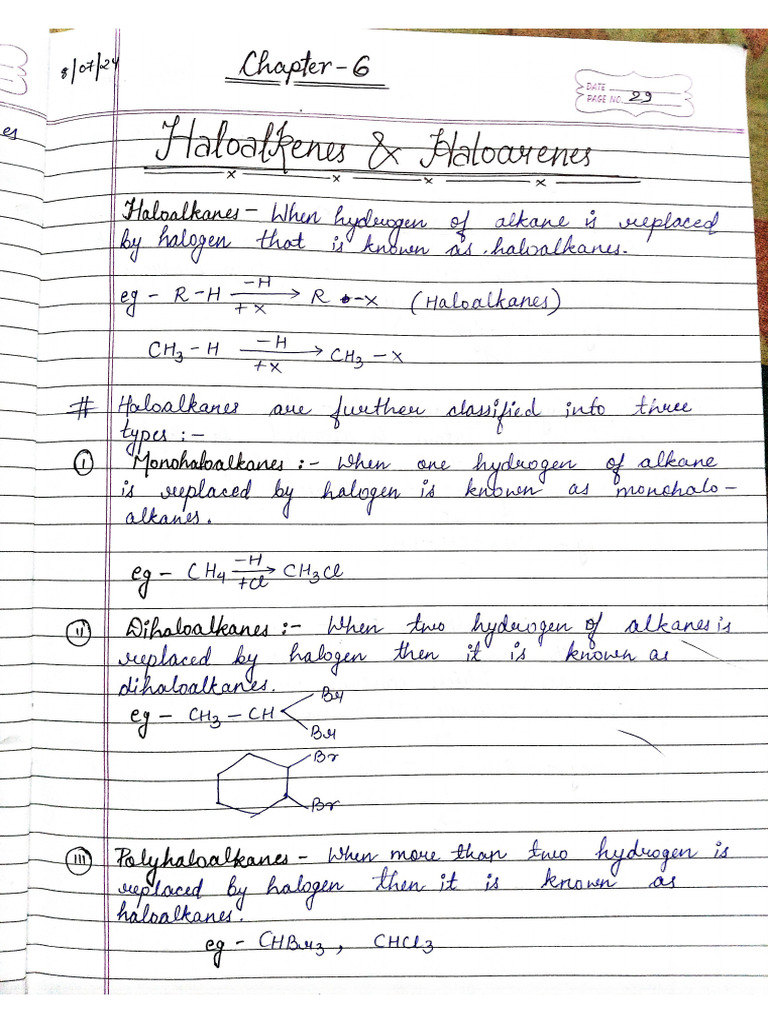 8/07/24
Chapter-6
DATE
PAGE NO. 29
es
Haloalkenes & Haloarenes
Haloalkanes - When hydrogen of alkane is replaced
by halogen that is known as haloalkanes.
eg - R-H -H → +X R -X (Haloalkanes)
CH3-H -H → +X CH3-X
# Haloalkanes are further classified into three
types :-
(i) Monohaloalkanes :- When one hydrogen of alkane
is replaced by halogen is known as monohalo-
alkanes.
eg - CH4 -H → +Cl CH3Cl
(ii) Dihaloalkanes :- When two hydrogen of alkanes is
replaced by halogen then it is known as
dihaloalkanes.
Br
eg - CH3-CH
Br
Br
Br
(iii) Polyhaloalkanes - When more than two hydrogen is
replaced by halogen then it is known as
haloalkanes.
eg - CHBr3, CHCl3